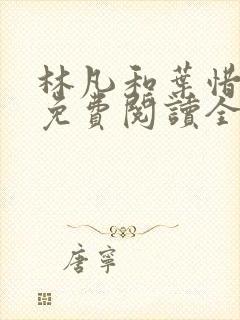 林凡和葉惜
免費閱讀全
唐寧